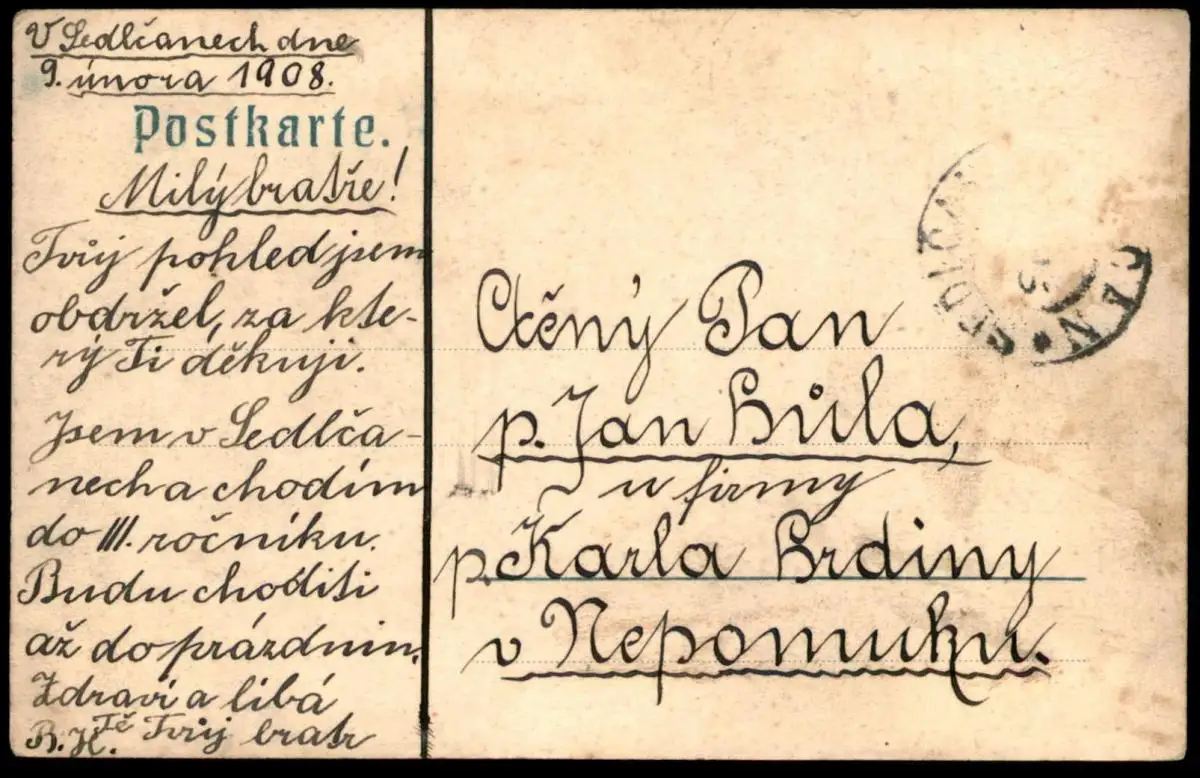 V Sedlčanech dne
9. února 1908.
Postkarte.
Milý bratře!
Tvůj pohled jsem
obdržel, za kte-
rý Ti děkuji.
Jsem v Sedlča-
nech a chodím
do III. ročníku.
Budu choditi
až do prázdnin.
Zdraví a libá
Tě Tvůj bratr
B. H.
Ctěný Pan
p. Jan Bůla,
u firmy
p. Karla Brdiny
v Nepomuku.